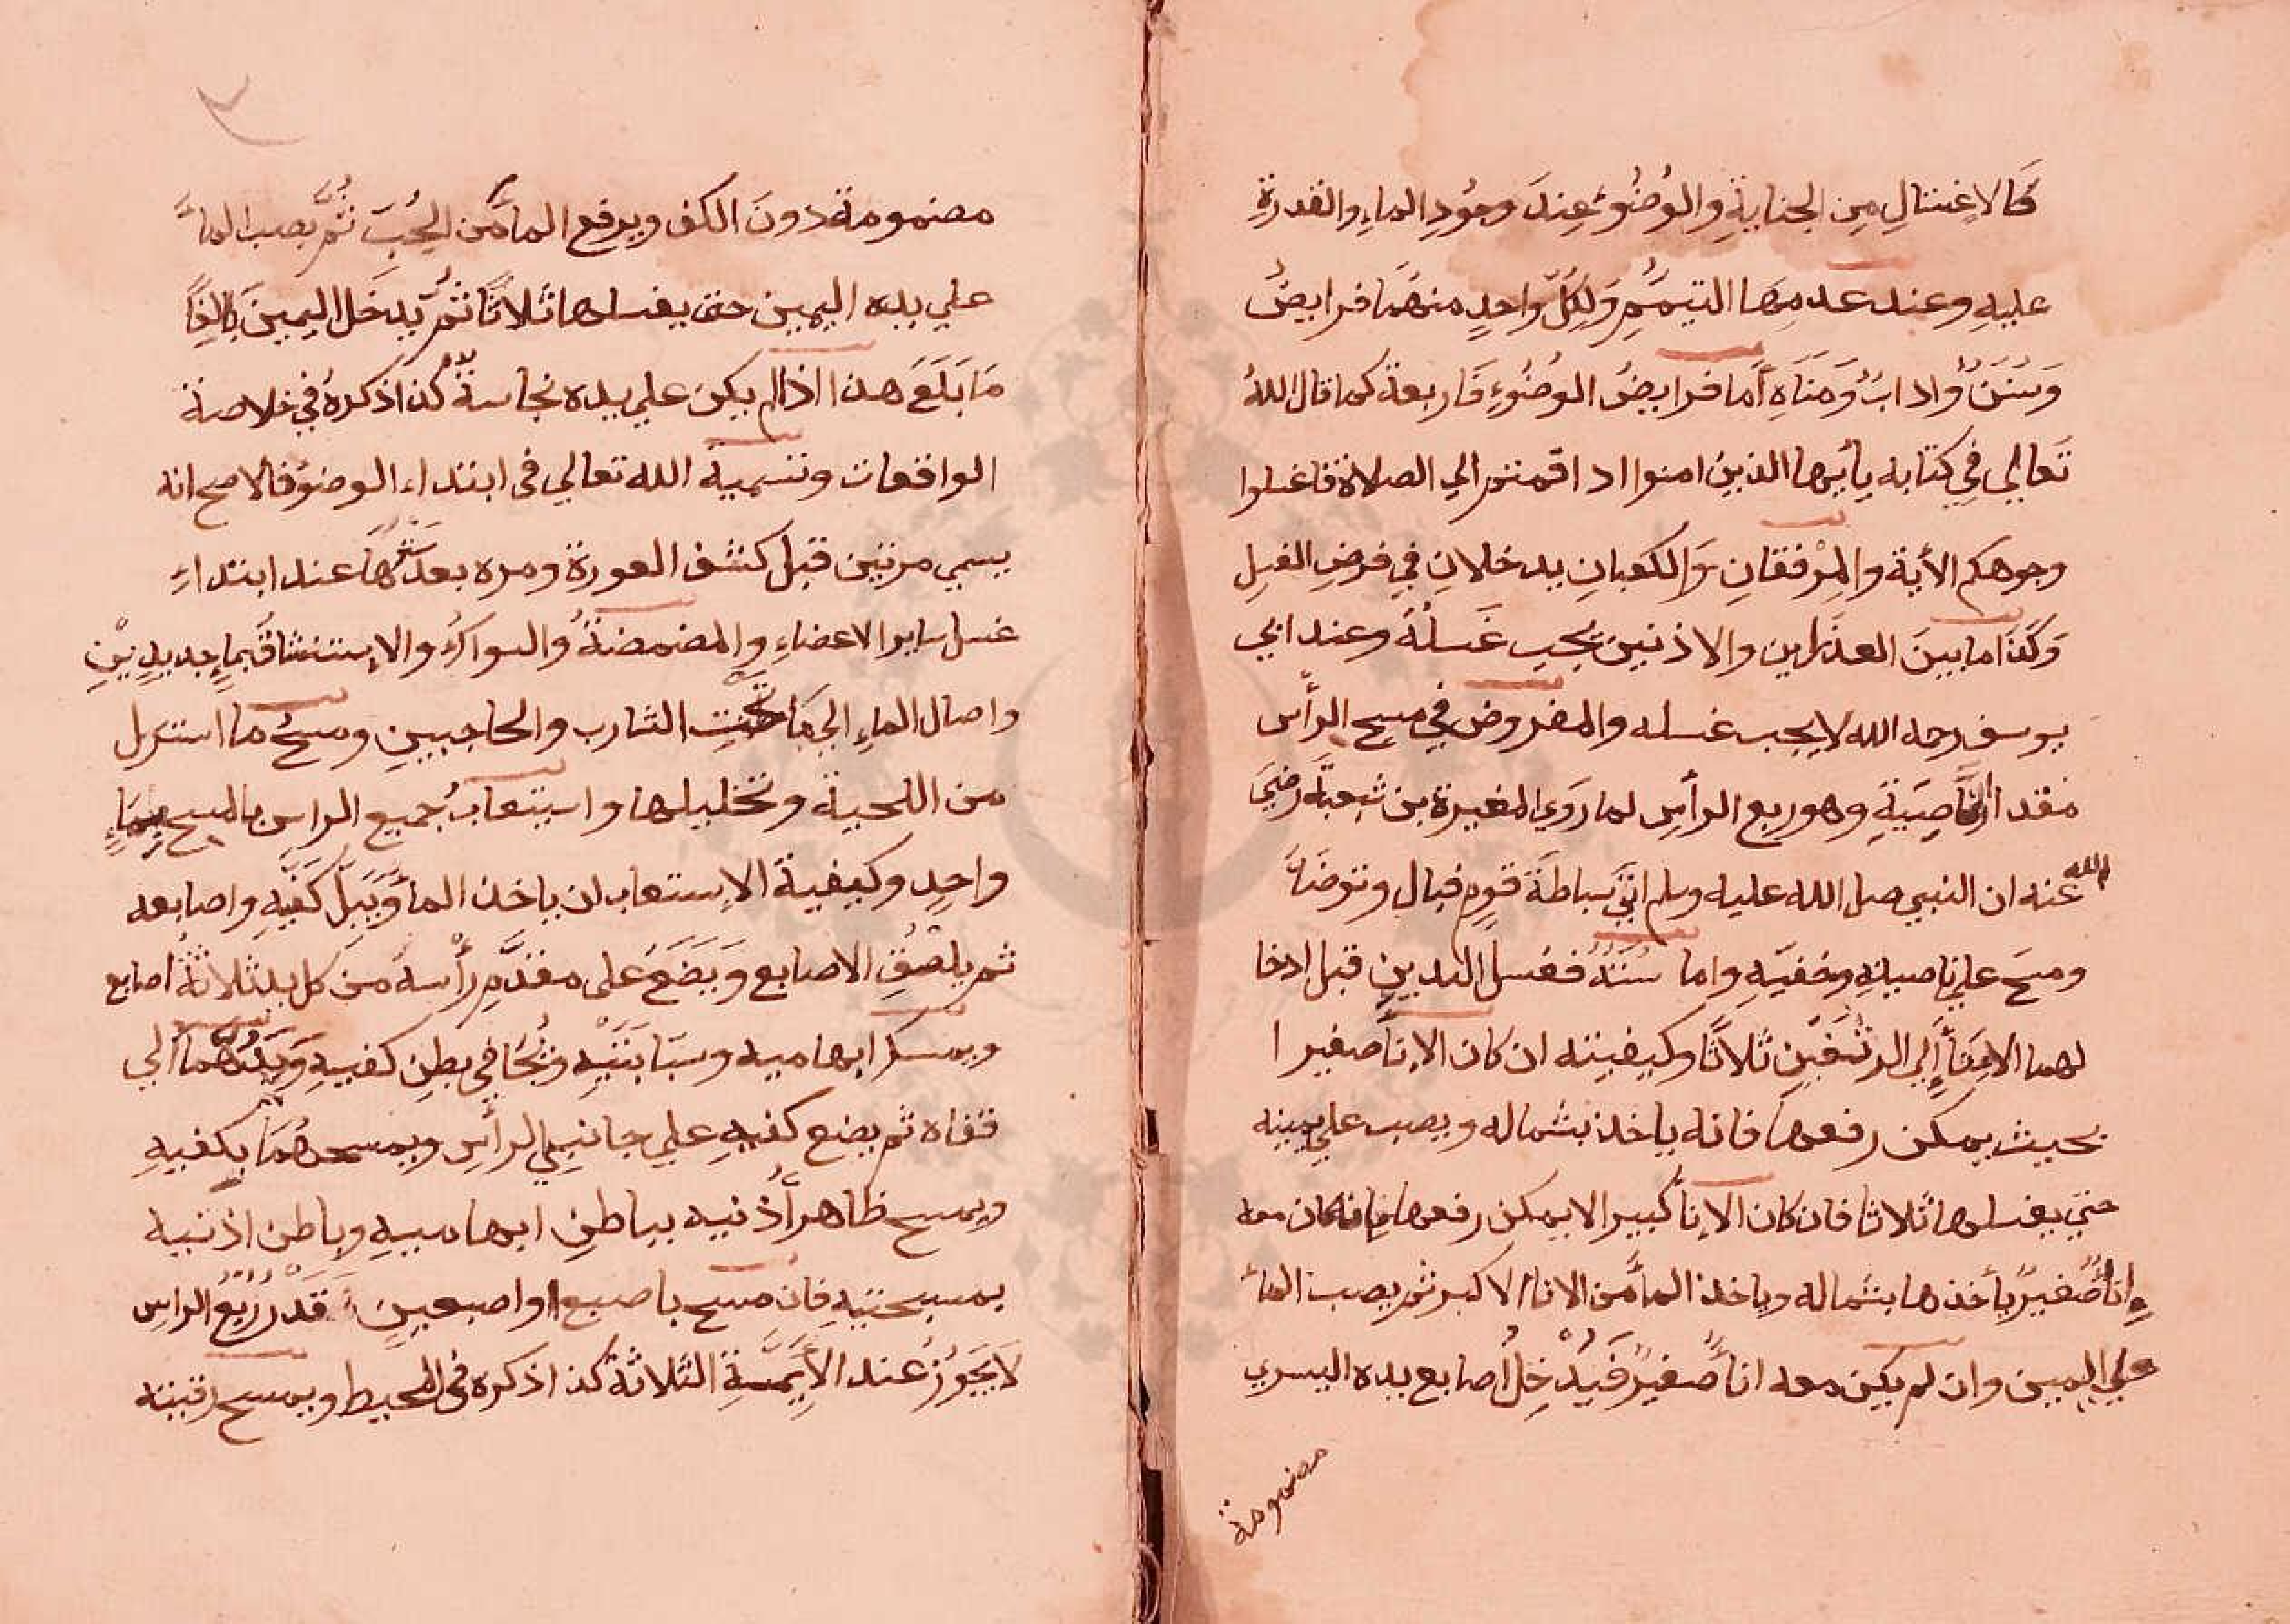 كَالاِغتسَالِ مِن الجنابةِ والوُضُوءِ عِندَ وجُودِ الماءِ والقدرةِ
عليهِ وعند عدمِهَا التيمّمُ وَلِكُلِّ واحِدٍ منهُمَا فرايضُ
وَسُنَنٌ وادابٌ وَمَنَاهٍ أما فرايضُ الوُضُوءِ فاربعة كما قال اللهُ
تَعالي في كتابه يأيّها الذين امنوا اذا قمتم الي الصلاة فاغسلوا
وجوهكم الأية والمِرْفقانِ وَالكعبانِ يدخلانِ في فرض الغسِل
وَكَذا ما بينَ العذارين والاذنين يجِب غَسلُهُ وعند ابي
يوسف رحمه الله لا يجب غسله والمفروض في مسح الرأس
مقدار النَّاصِيَةِ وهو ربع الرأسِ لما رَوَي المغيرة بن شعبة رضيَ
الله عنه ان النبي صلي الله عليه وسلم اتَي سباطةَ قومٍ فبال وتوضّأَ
ومسَح علي ناصيته وخفيّهِ واما سُنَنُهُ فغسل اليدينِ قبل ادخا
لهما الاِنَاءَ إلي الرسْغَيْن ثلاثًا وكيفيته ان كان الإناَ صغيرا
بحيث يمكن رفعها فانه ياخذ بشماله ويصب علي يمينه
حتي يغسلها ثلاثا فان كان الاناَ كبيرا لا يمكن رفعها فان كان معه
واناٌ صُغيرٌ يأخذها بشماله وياخذ الماَ من الاناَ الاكبر ثم يصب الماءَ
علي اليمين وان لم يكن معه اناٌ صغيرٌ فَيُدْخِلُ اصابع يده اليسري
مضمومة
مضمومة دونَ الكف ويرفع الماَ من الحُبِّ ثُمَّ يصب الماءَ
علي يده اليمين حتى يغسلها ثلاثًا ثمُّ يدخَل اليمينَ بالِغًا
مَا بَلَغَ هذا اذا لم يكن علي يده نجاسةٌ كذا ذكره في خلاصة
الواقعات وتسمية الله تعالي فى ابتداء الوضؤ فالاصح انه
يسمي مرتين قبل كشف العورة ومره بعد سَتْرِهَا عند ابتداءِ
غسل ساير الاعضاءِ والمضمضةُ والسواكُ والاِستنشاقُ بماءٍ جديدَيْنِ
واصال الماءِ الي مَا تحت الشارب والحاجبينِ ومسحُ ما استرسل
من اللحية وتخليلها واستيعابُ جميع الراس بالمسح بماءٍ
واحِدٍ وكيفية الاِستعاب ان ياخذ الماَ وَيَبَلَّ كَفّيهِ واصابعه
ثم يلصُقِ الاصابع وَيَضَعَ على مقدّمِ رأسه من كل يد ثلاثةُ اصابع
ويمسك ابهاميه وسبّابَتَيْهِ ويُجَافي بطن كفيهِ وَيَمُدُّهُمَا الي
قفاه ثم يضع كفيهِ علي جانبي الرأسِ ويمسحهُمَا بكفيهِ
ويمسح ظاهر أُذنيه بباطنِ ابهاميهِ وباطن اذنيه
بمسبحتيهِ فان مسح باصبع او اصبعينِ قَدْرَ رُبُعُ الراسِ
لا يَجُوزُ عند الاَيِمَّةِ الثّلاثة كذا ذكره في المحيط ويمسح رقبته